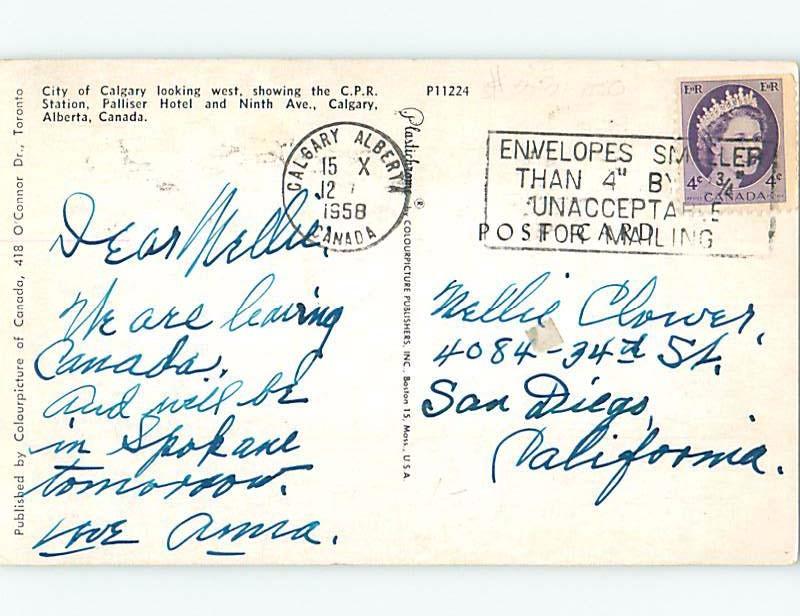 City of Calgary looking west, showing the C.P.R.
Station, Palliser Hotel and Ninth Ave., Calgary,
Alberta, Canada.
P11224
CALGARY ALBERTA
15 X
12
1958
CANADA
ENVELOPES SMALLER
THAN 4" BY 2 3/4"
UNACCEPTABLE
FOR MAILING
EⅡR EⅡR
4¢ 4¢
CANADA
POST CARD
Dear Nellie,
We are leaving
Canada.
And will be
in Spokane
tomorrow.
Love Anna.
Nellie Clower,
4084-34th St.
San Diego,
California.
Published by Colourpicture of Canada, 418 O'Connor Dr., Toronto
Plastichrome ® by COLOURPICTURE PUBLISHERS, INC., Boston 15, Mass., U.S.A.